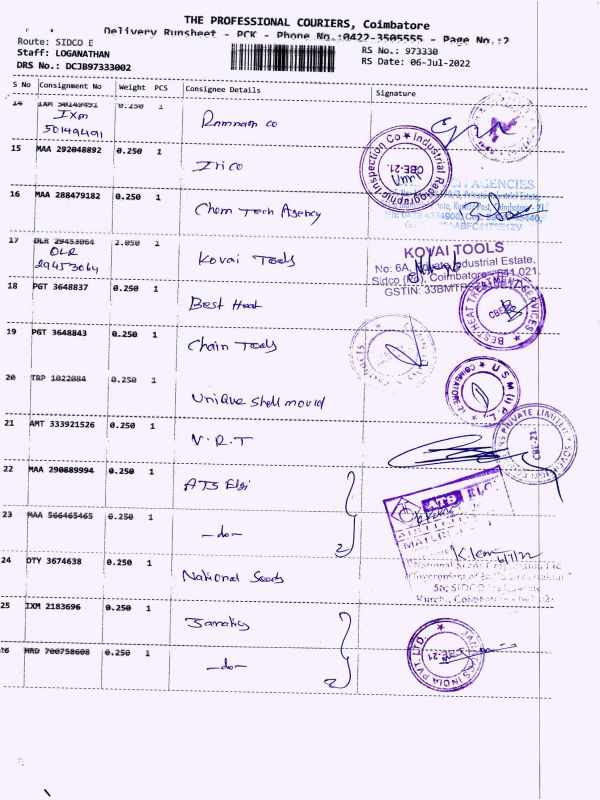 THE PROFESSIONAL COURIERS, Coimbatore
Delivery Runsheet - PCK - Phone No.:0422-3505555 - Page No.:2
Route: SIDCO E
RS No.: 973330
Staff: LOGANATHAN
RS Date: 06-Jul-2022
DRS No.: DCJB97333002
S No Consignment No Weight PCS Consignee Details Signature
14 IXM 50149491 0.250 1
IXM
50149491
Ramnam co
15 MAA 292048892 0.250 1
Irico
Industrial Radiographic Inspection Co
CBE-21
16 MAA 288479182 0.250 1
Chem Tech Agency
AGENCIES
17 DLR 29453064 2.050 1
DLR
29453064
Kovai Tools
KOVAI TOOLS
No: 6A, Industrial Estate,
Sidco Coimbatore - 641 021.
18 PGT 3648837 0.250 1
Best Heat
BEST HEAT TREATMENT SERVICES
CBE
19 PGT 3648843 0.250 1
Chain Tools
20 TRP 1022084 0.250 1
Unique shell mould
USM (I) P L
COIMBATORE
21 AMT 333921526 0.250 1
V.R.T
PRIVATE LIMITED
CBE-21
22 MAA 290889994 0.250 1
ATS Elgi
ATS ELGI
23 MAA 566465465 0.250 1
-do-
24 OTY 3674638 0.250 1
National Seeds
6/7/22
National Seeds
25 IXM 2183696 0.250 1
Janatics
JANATICS INDIA PVT. LTD.
CBE-21
26 HRD 700758608 0.250 1
-do-